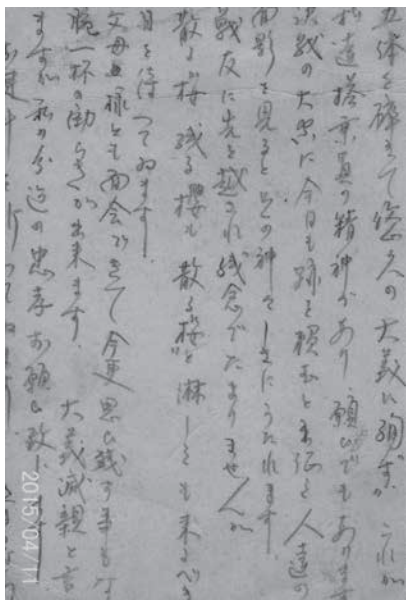 五体を砕きて悠久の大義に殉ず これが
私達搭乗員の精神であり 願ひでもあります
決戦の大空に今日も翼を横たと出征く人達の
面影を見るとその神々しさにうたれます
戦友に先を越され残念でたまりませんが
散る桜 残る桜も 散る桜と 淋しくも来るべき
日を待つてゐます
父母上様とも面会できて今更思ひ残す事もな
腕一杯の働らきが出来ます 大義滅親と言
ますが 私の分迄の忠孝お願ひ致します
2015/04/11